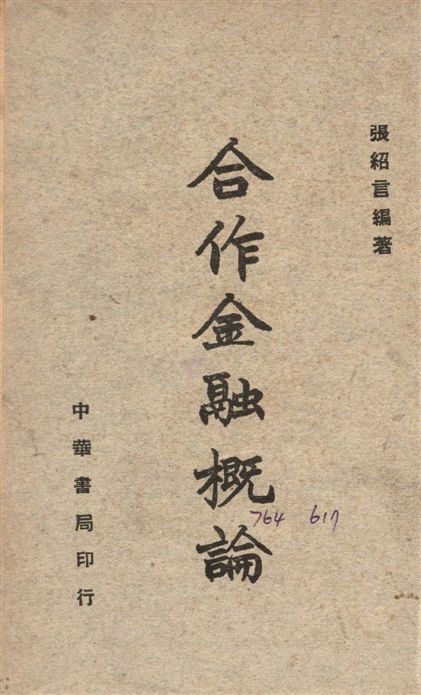 張紹言編著
合作金融概論
中華書局印行
764 617